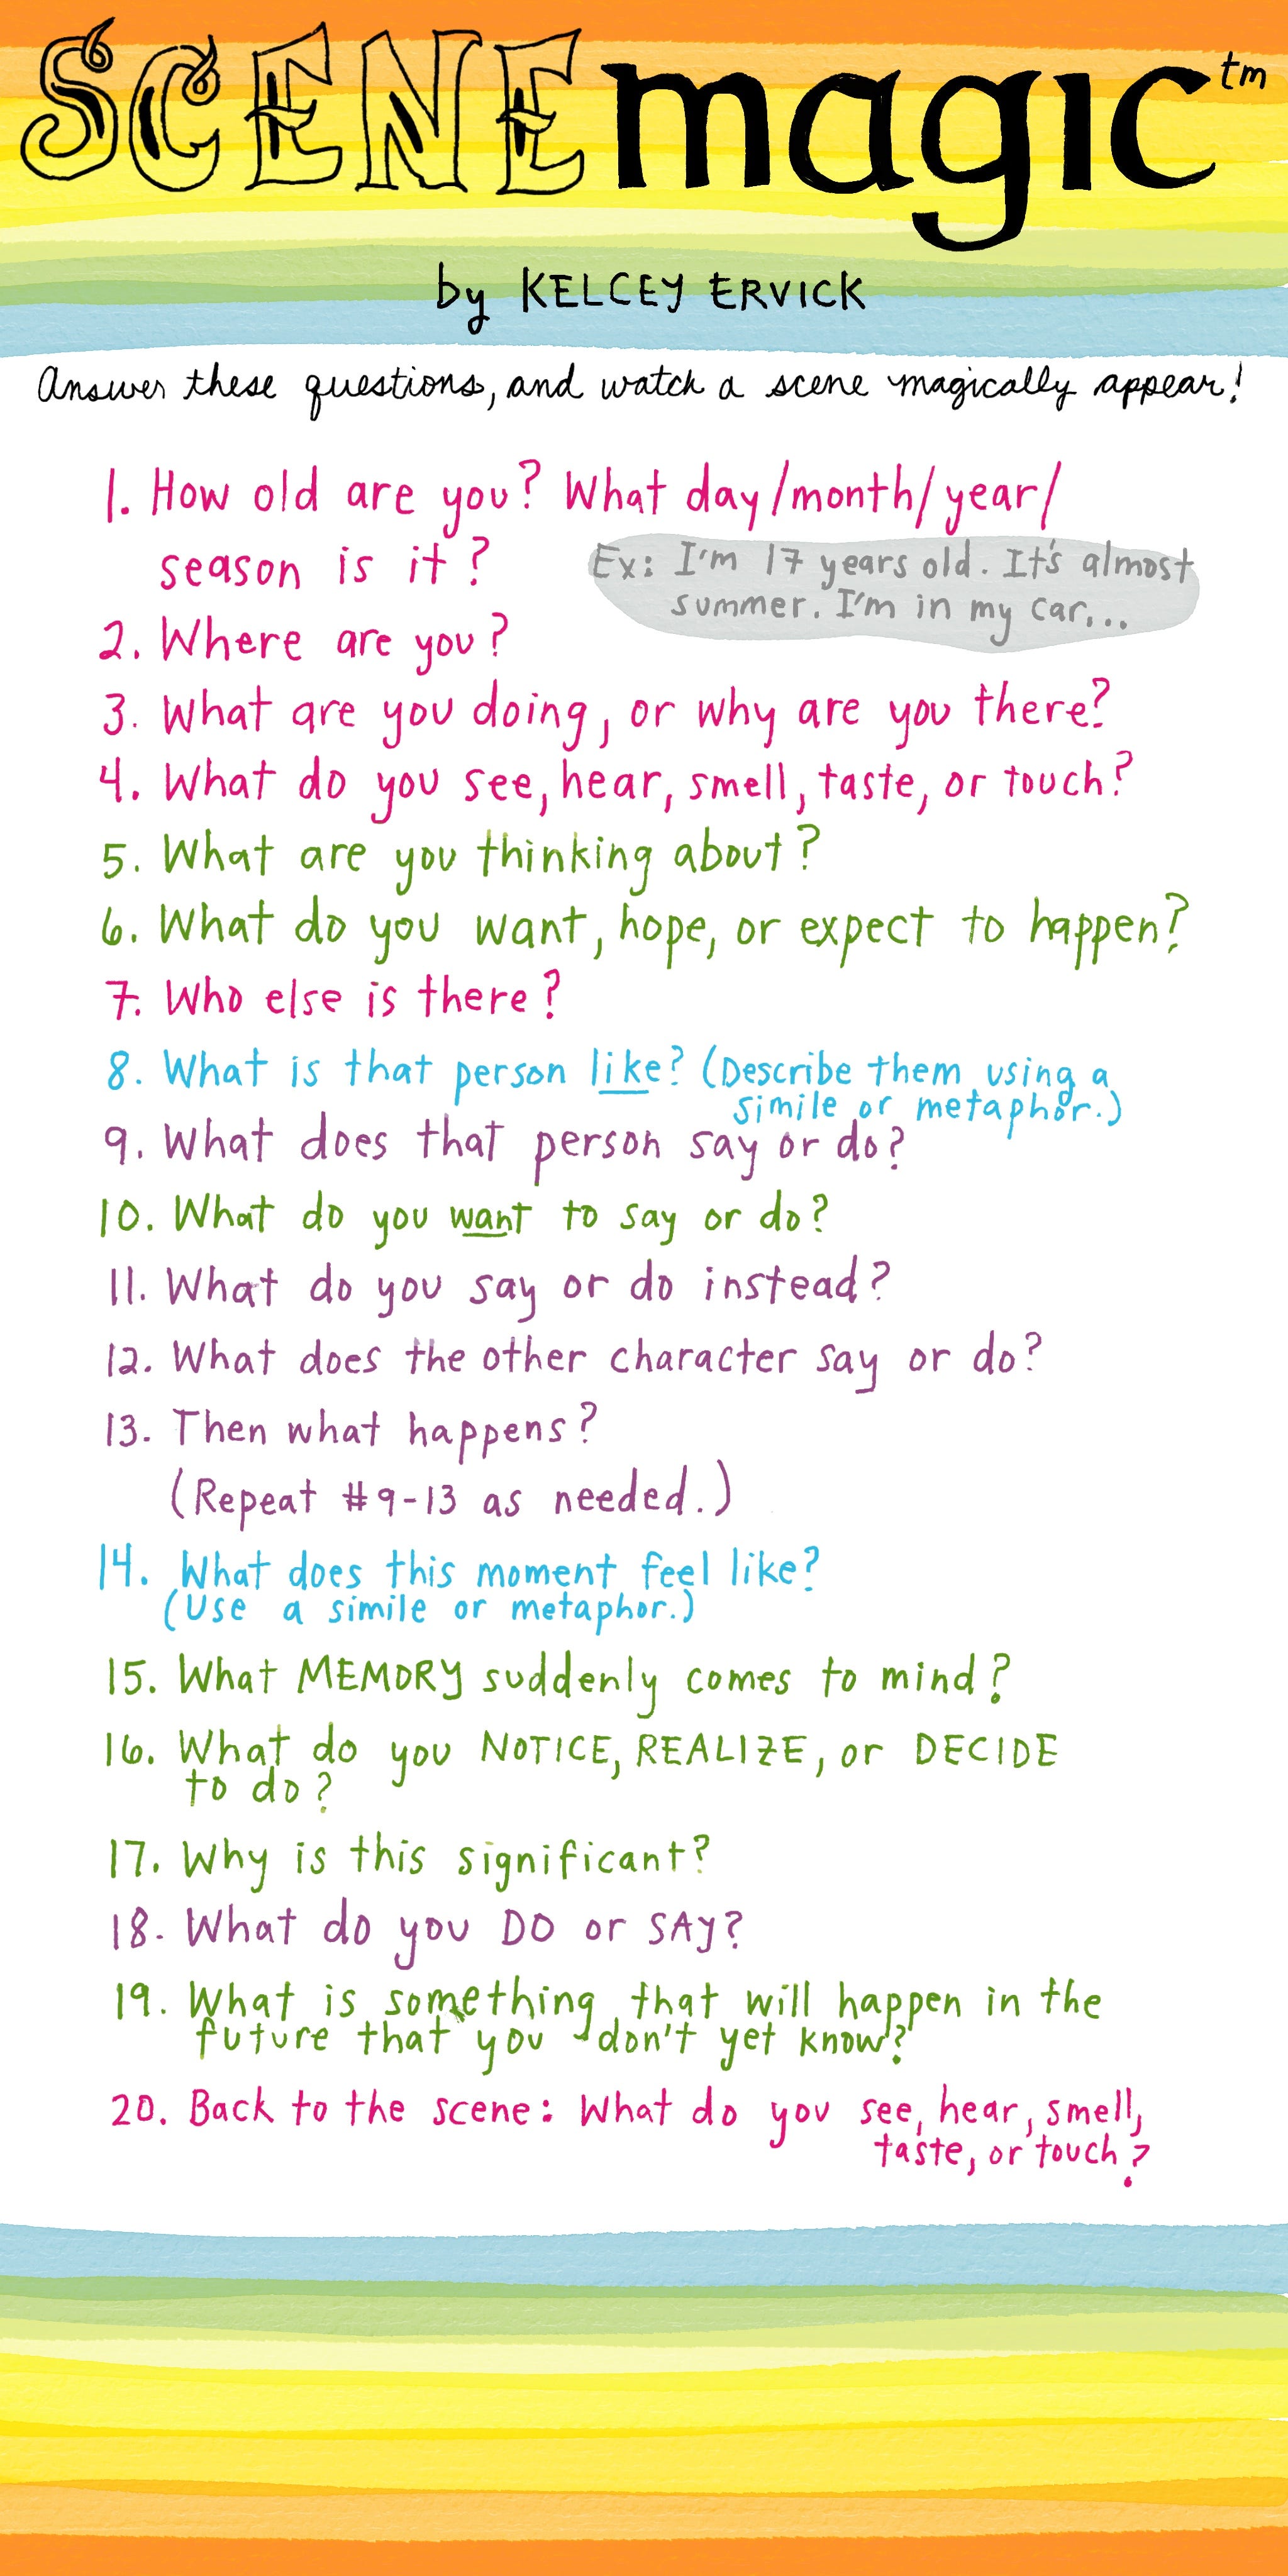 SCENE magic tm
by KELCEY ERVICK
Answer these questions, and watch a scene magically appear!
1. How old are you? What day/month/year/
season is it?
Ex: I'm 17 years old. It's almost
summer. I'm in my car...
2. Where are you?
3. What are you doing, or why are you there?
4. What do you see, hear, smell, taste, or touch?
5. What are you thinking about?
6. What do you want, hope, or expect to happen?
7. Who else is there?
8. What is that person like? (Describe them using a
simile or metaphor.)
9. What does that person say or do?
10. What do you want to say or do?
11. What do you say or do instead?
12. What does the other character say or do?
13. Then what happens?
(Repeat #9-13 as needed.)
14. What does this moment feel like?
(Use a simile or metaphor.)
15. What MEMORY suddenly comes to mind?
16. What do you NOTICE, REALIZE, or DECIDE
to do?
17. Why is this significant?
18. What do you DO or SAY?
19. What is something that will happen in the
future that you don't yet know?
20. Back to the scene: What do you see, hear, smell,
taste, or touch?